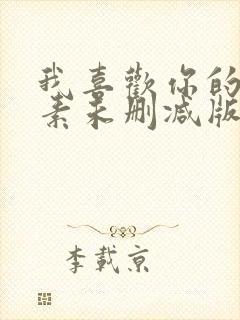 我喜歡你的
素未删减版
李載京